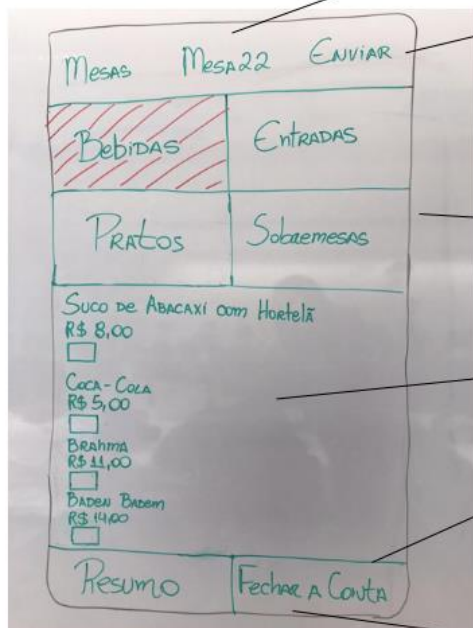 Mesas Mesa 22 Enviar
Bebidas Entradas
Pratos Sobremesas
Suco de Abacaxi com Hortelã
R$ 8,00
Coca-Cola
R$ 5,00
Brahma
R$ 11,00
Baden Badem
R$ 14,00
Resumo Fechar a Conta